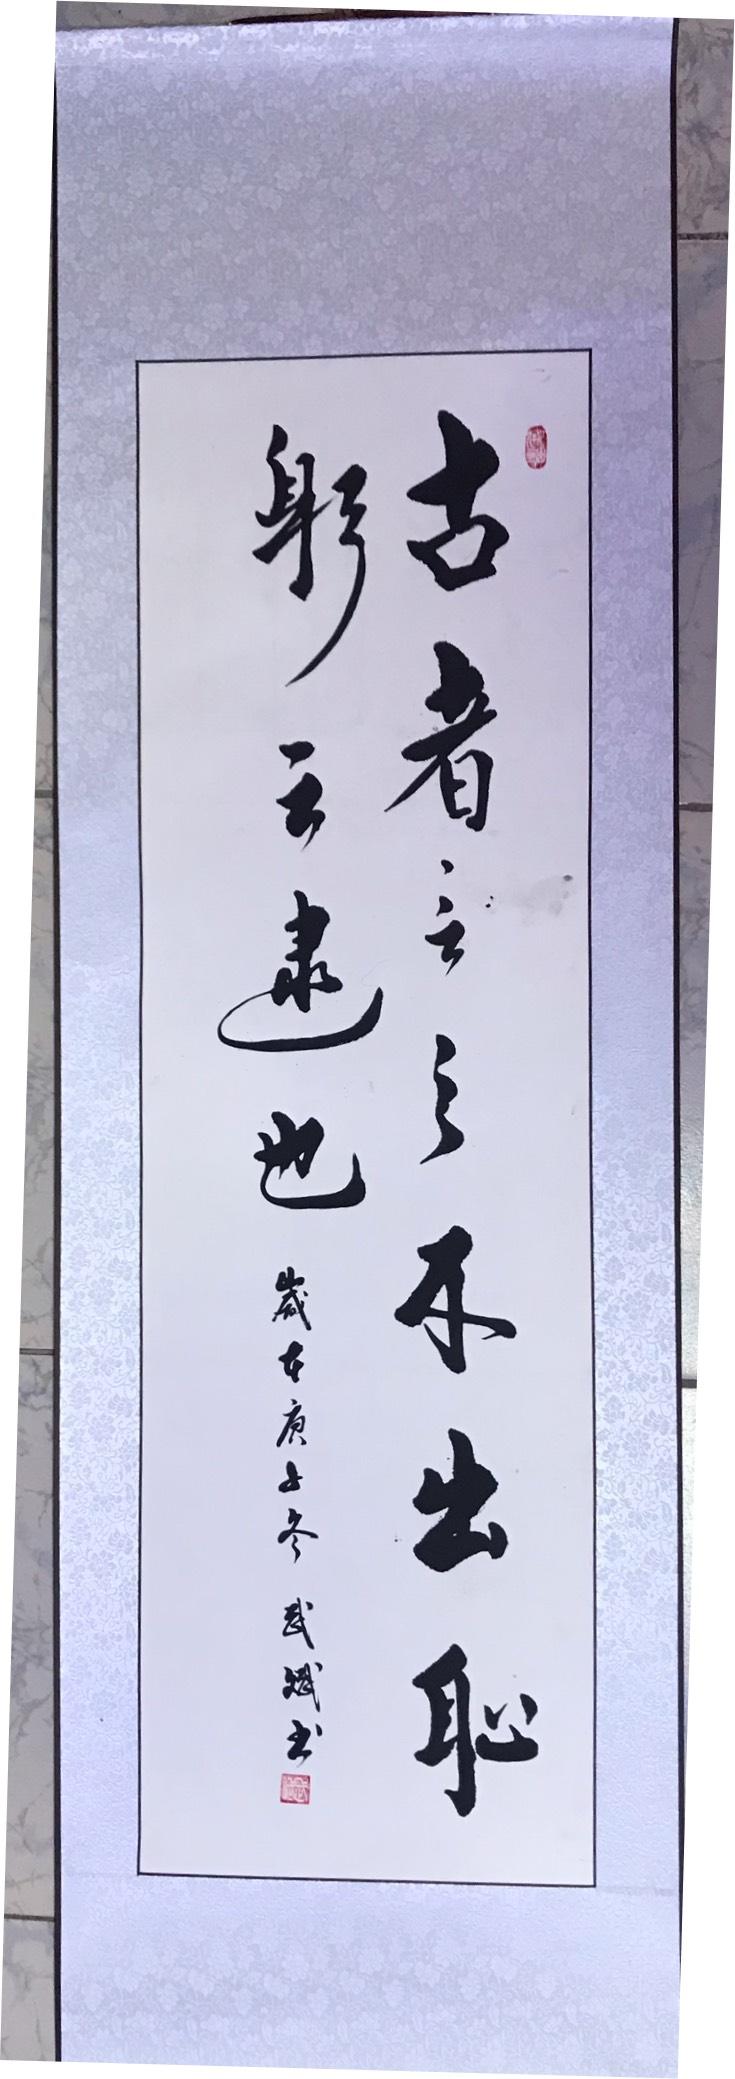 古者言之不出恥
躬云逮也 歲在庚子冬 武斌書